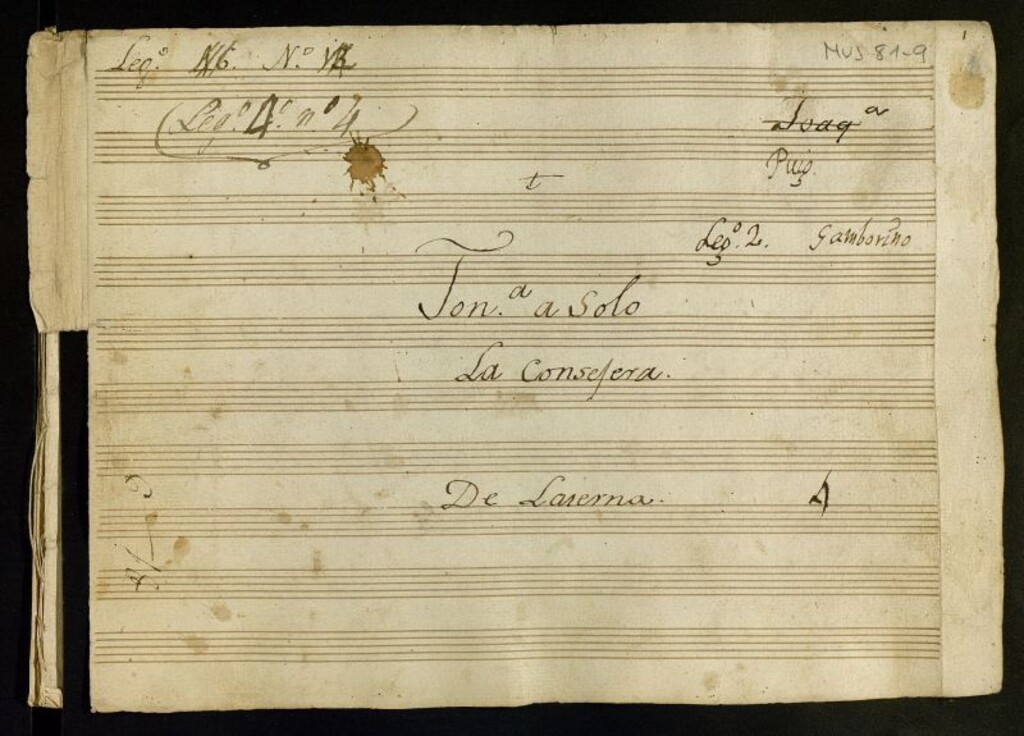 Leg.º N.º
MUS 81-9
1
Leg.º 4.º n.º 4
Joaq.ª
Puig.
Leg.º 2. Gamborino
Ton.ª a Solo
La Consejera.
De Laserna.
81-9